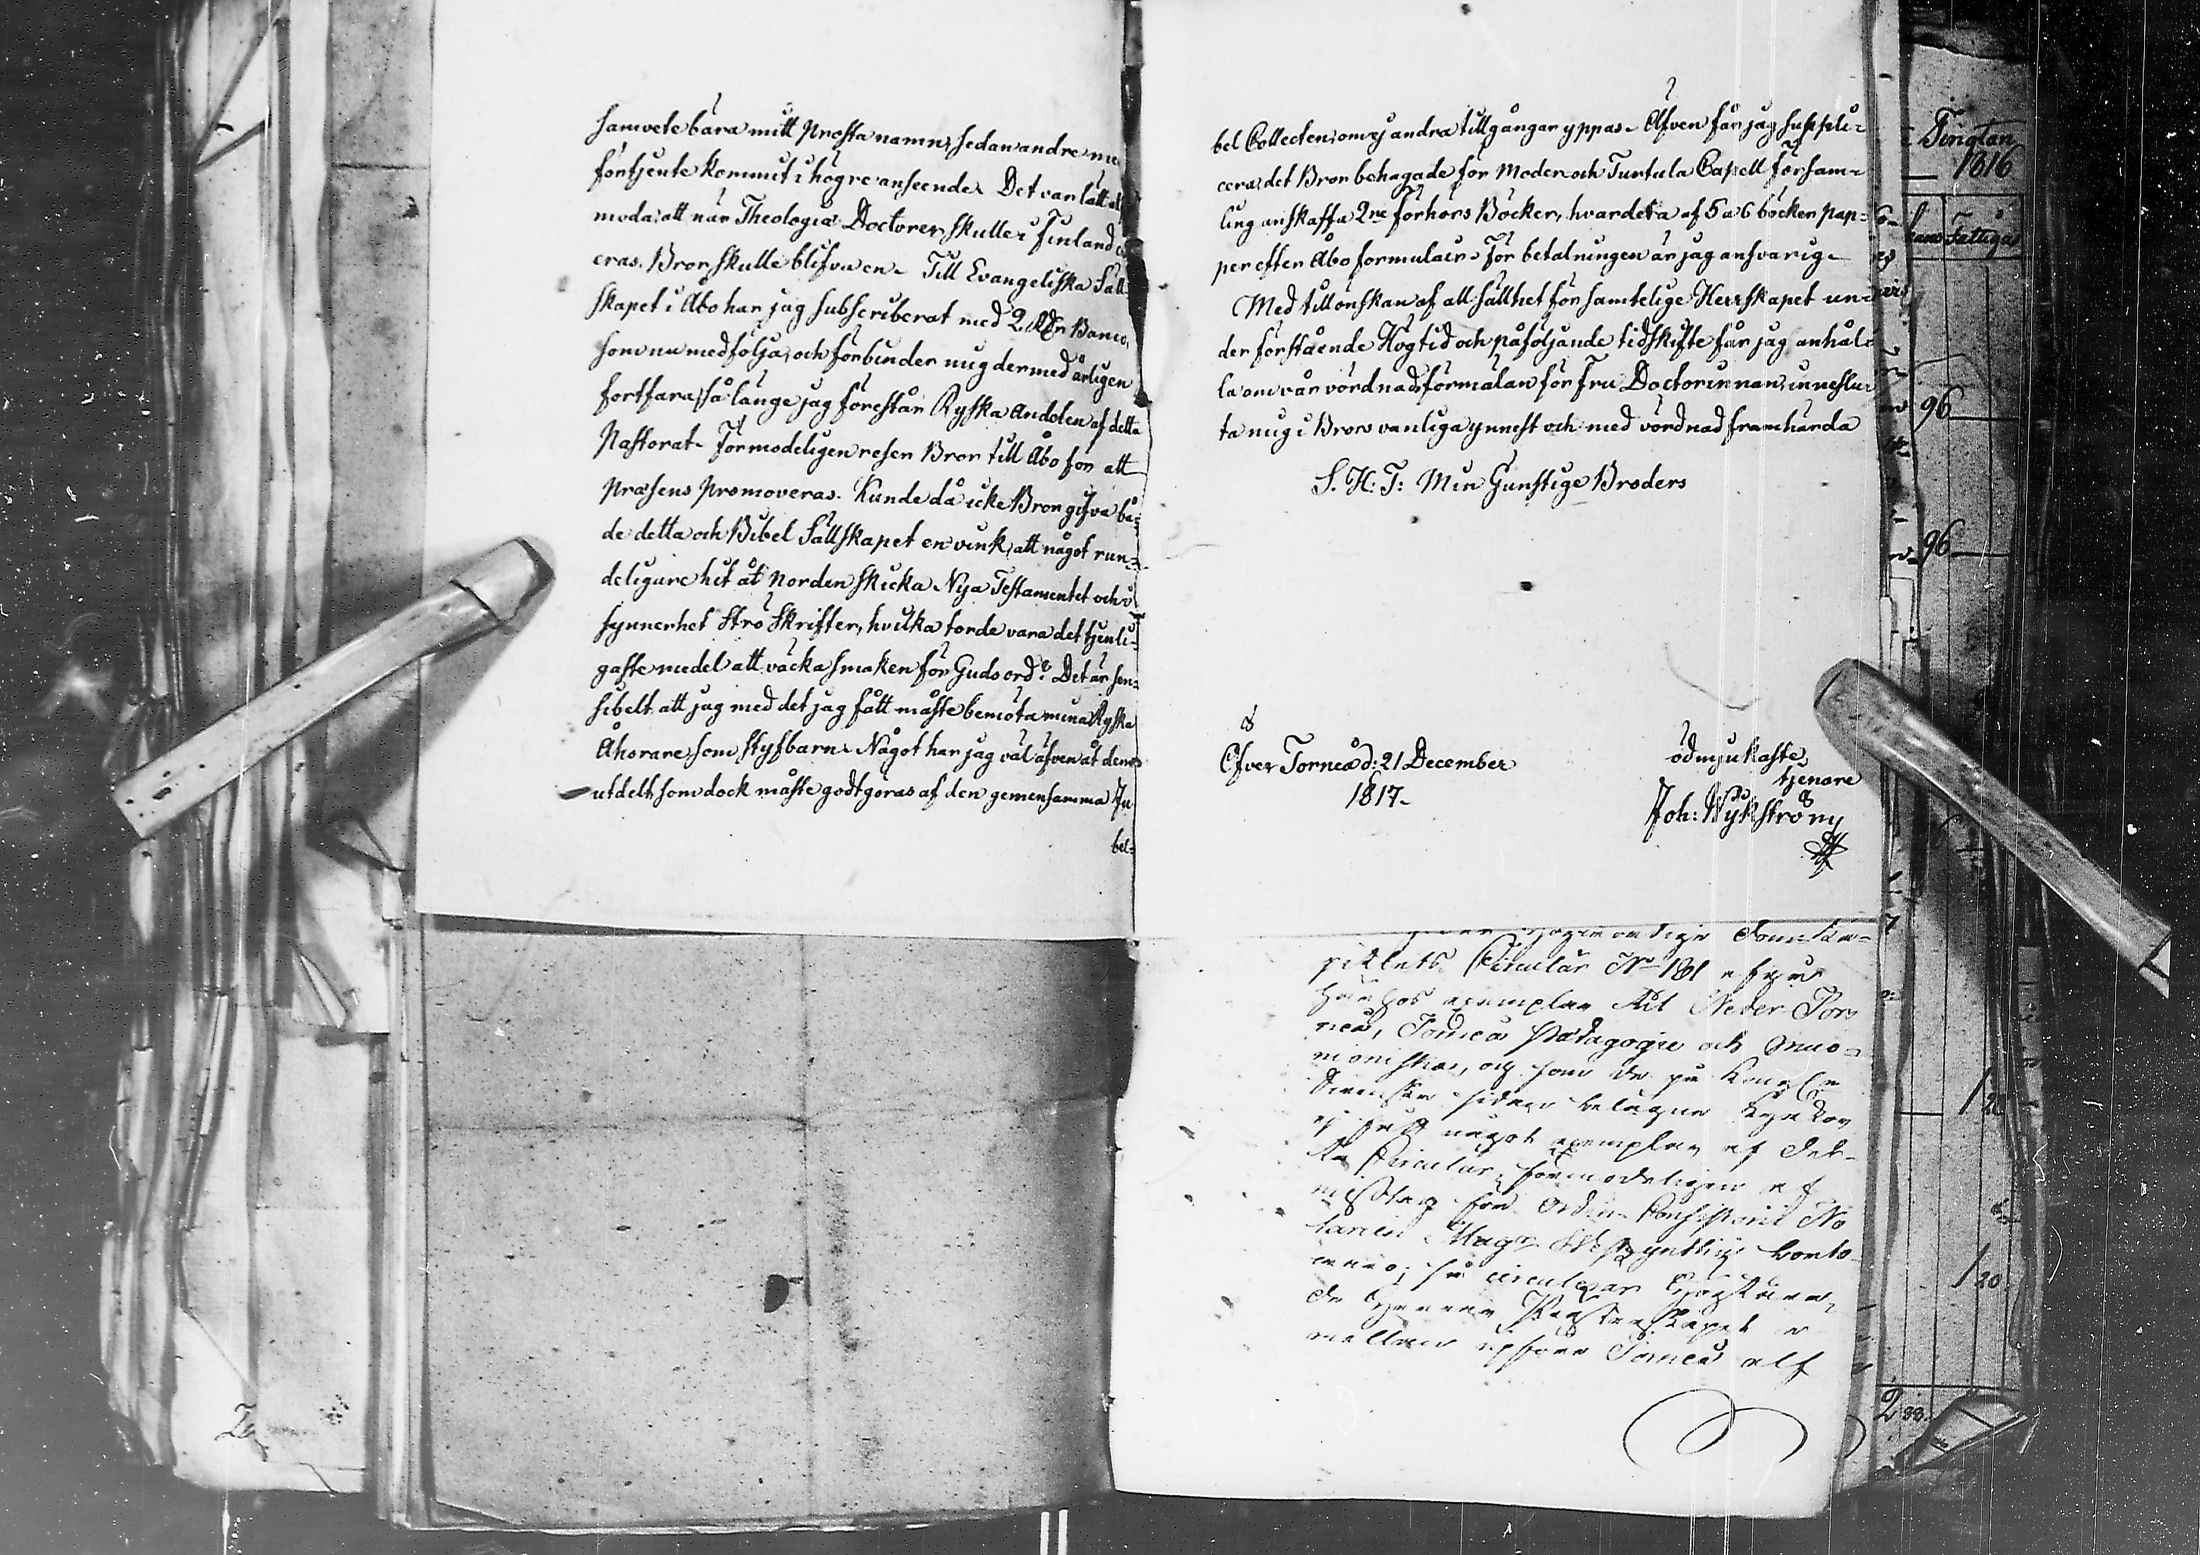 samvete bära mitt Prosta namn, sedan andre me
förtjente kommit i högre anseende. Det var lätt at
moda, att när Theologiæ Doctorer skulle i Finland c
eras, Bror skulle blifva en. Till Evangeliska Säll
skapet i Åbo har jag subscriberat med 2 Rdr Banco,
som nu medfölja, och förbinder mig dermed årligen
fortfara, så länge jag förestår Ryska Andelen af detta
Pastorat. Förmodeligen reser Bror till Åbo för att
præsens promoveras. Kunde då icke Bror gifva bå-
de detta och Bibel Sällskapet en vink, att något run-
deligare hit åt Norden skicka Nya Testamentet och i
synnerhet Strö Skrifter, hvilka torde vara det tjenli-
gaste medel att väcka smaken för Guds ord? Det är sen-
sibelt att jag med det jag fått måste bemöta mina Ryska
Åhörare som styfbarn. Något har jag väl äfven åt dem
utdelt, som dock måste godtgöras af den gemensamma Ju
bel-
bel Collecten, om ej andra tillgångar yppas. Äfven får jag suppli-
cera, det Bror behagade för Moder och Turtula Capell Försam-
ling anskaffa 2ne Förhörs Böcker, hvardera af 5 a 6 böcker pap-
per efter Åbo formulair. För betalningen är jag ansvarig.
Med tillönskan af all sällhet för samtelige Herrskapet un-
der förstående Högtid och påföljande tidskifte får jag anhål-
la om vår vördnads förmälan för Fru Doctorinnan, inneslu-
ta mig i Brors vanliga ynnest och med vördnad framhärda
S. H. T: Min Gunstige Broders
Öfver Torneå d: 21 December
1817.
ödmjukaste
tjenare
Joh: Wykström
pitlets Circulär No 181
exemplar till Neder Tor
neå, Torneå Pædagogie och Muo-
nioniska, och som de på Kongl.
Svenska sidan belägne Kyrkor
ej fått något exemplar af det-
ta Circulär, förmodeligen af
misstag från Ordin. Consistorii No
tarien Magr
så circulerar
Presterskapet e
mellan uppföre Torneå elf
Tinglan
1816
Fattiga
96
96
1 20
1 20
2